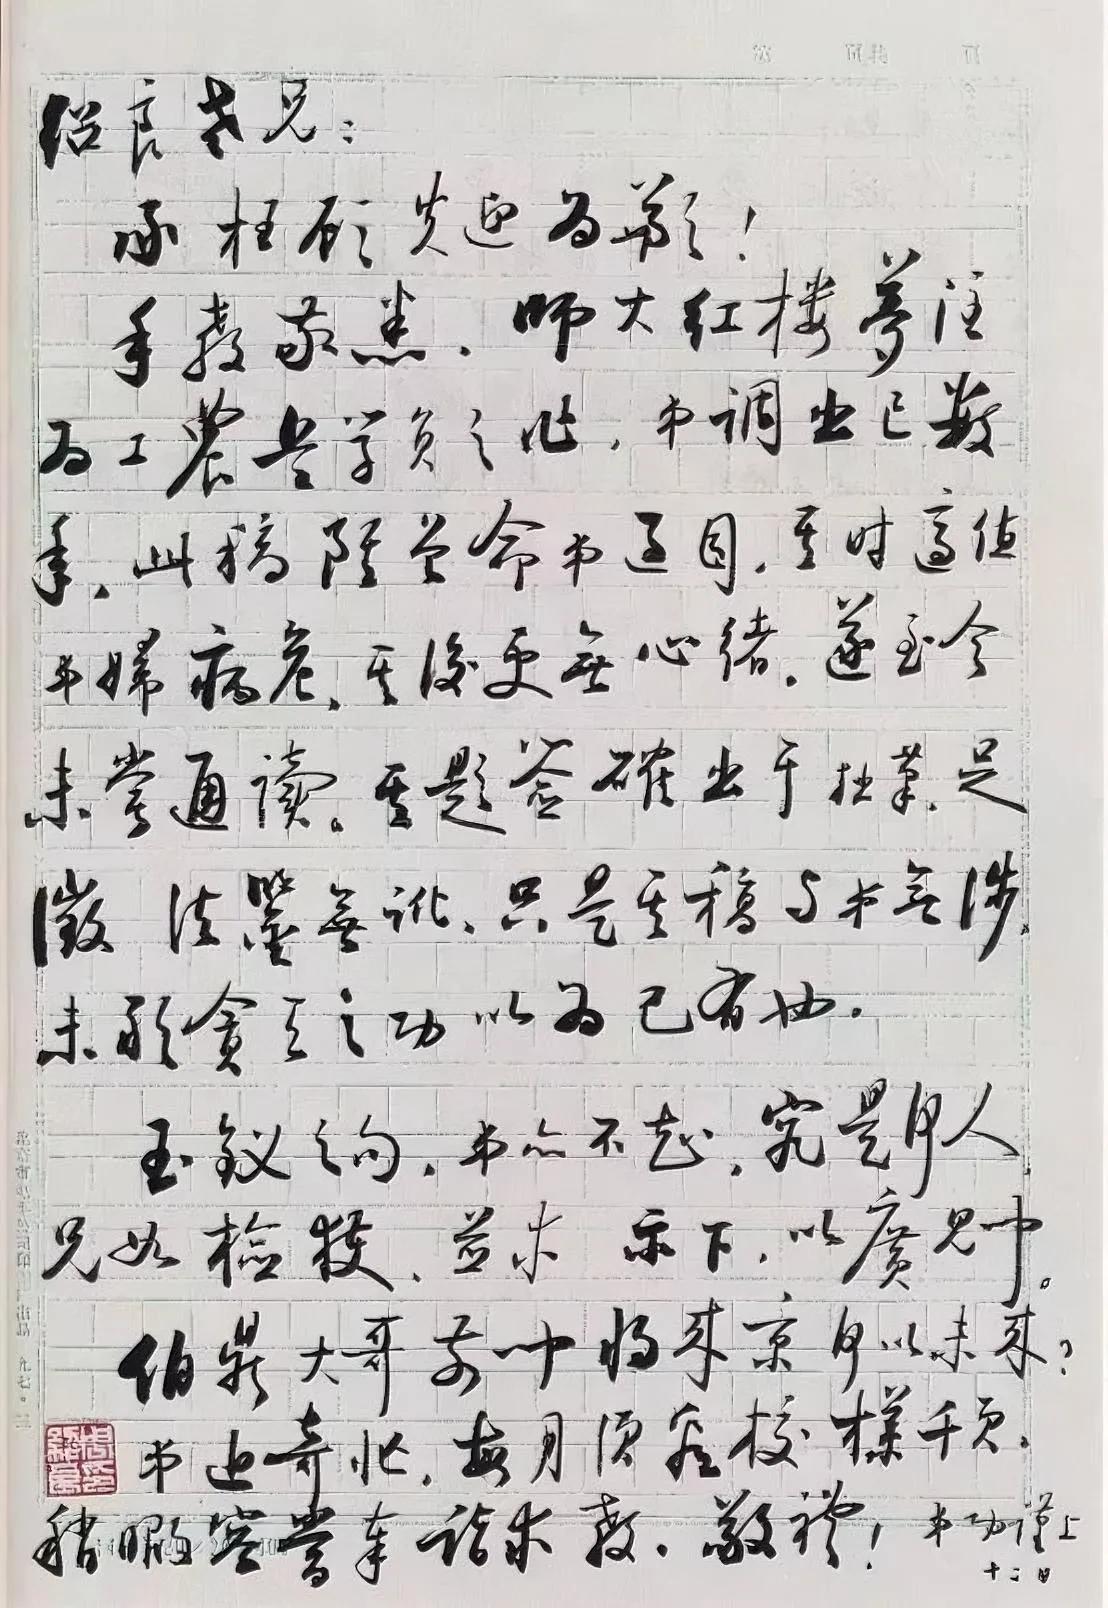 绍良老兄：
承枉顾失迎为歉！
手教敬悉．师大红楼梦注
为工农兵学员之作，弟调出已数
年，此稿虽曾命弟过目，其时适值
弟妇病危，其后更無心绪，遂至今
未尝通读。其题签确出于拙笔，足
徵 法鑒無讹，只是其稿与弟無涉，
未敢贪天之功以为己有也．
玉钗之句，弟亦不知，究是何人
兄如检獲，並求 示下，以廣见闻。
伯鼎大哥前闻将来京何以未来？
弟近奇忙，每月须看校樣千页，
稍暇签当奉诣求教．敬礼！ 弟功谨上
十二日